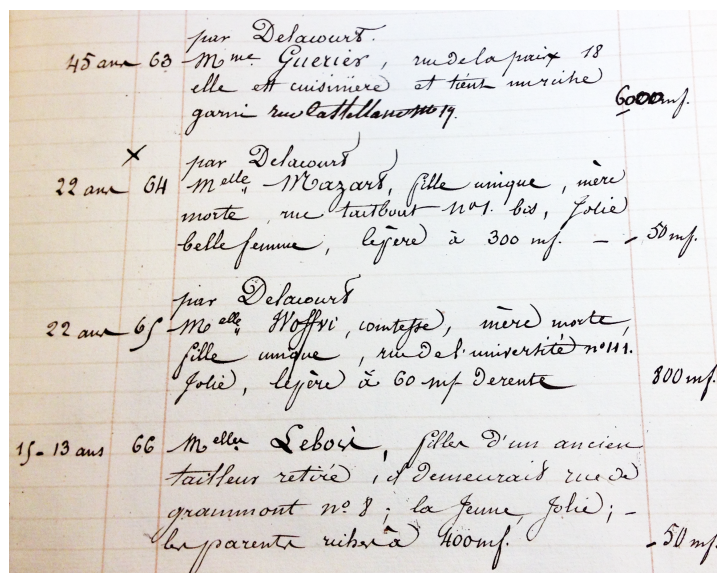 par Delacourt.
45 ans 63 Mme Guerier, rue de la paix 18
elle est cuisinière et tient un riche
garni rue Castellane no 19. 6000 mf.
par Delacourt
22 ans 64 Melle Mazard, fille unique, mère
morte, rue taitbout no 1. bis, Jolie
belle femme, le père à 300 mf. - - 50 mf.
par Delacourt
22 ans 65 Melle, comtesse, mère morte,
fille unique, rue de l'université no 111.
Jolie, le père à 60 mf de rente 800 mf.
15 - 13 ans 66 Melles, filles d'un ancien
tailleur retiré, il demeurait rue de
grammont no 8; la Jeune, Jolie; -
les parents riches à 400 mf. - 50 mf.